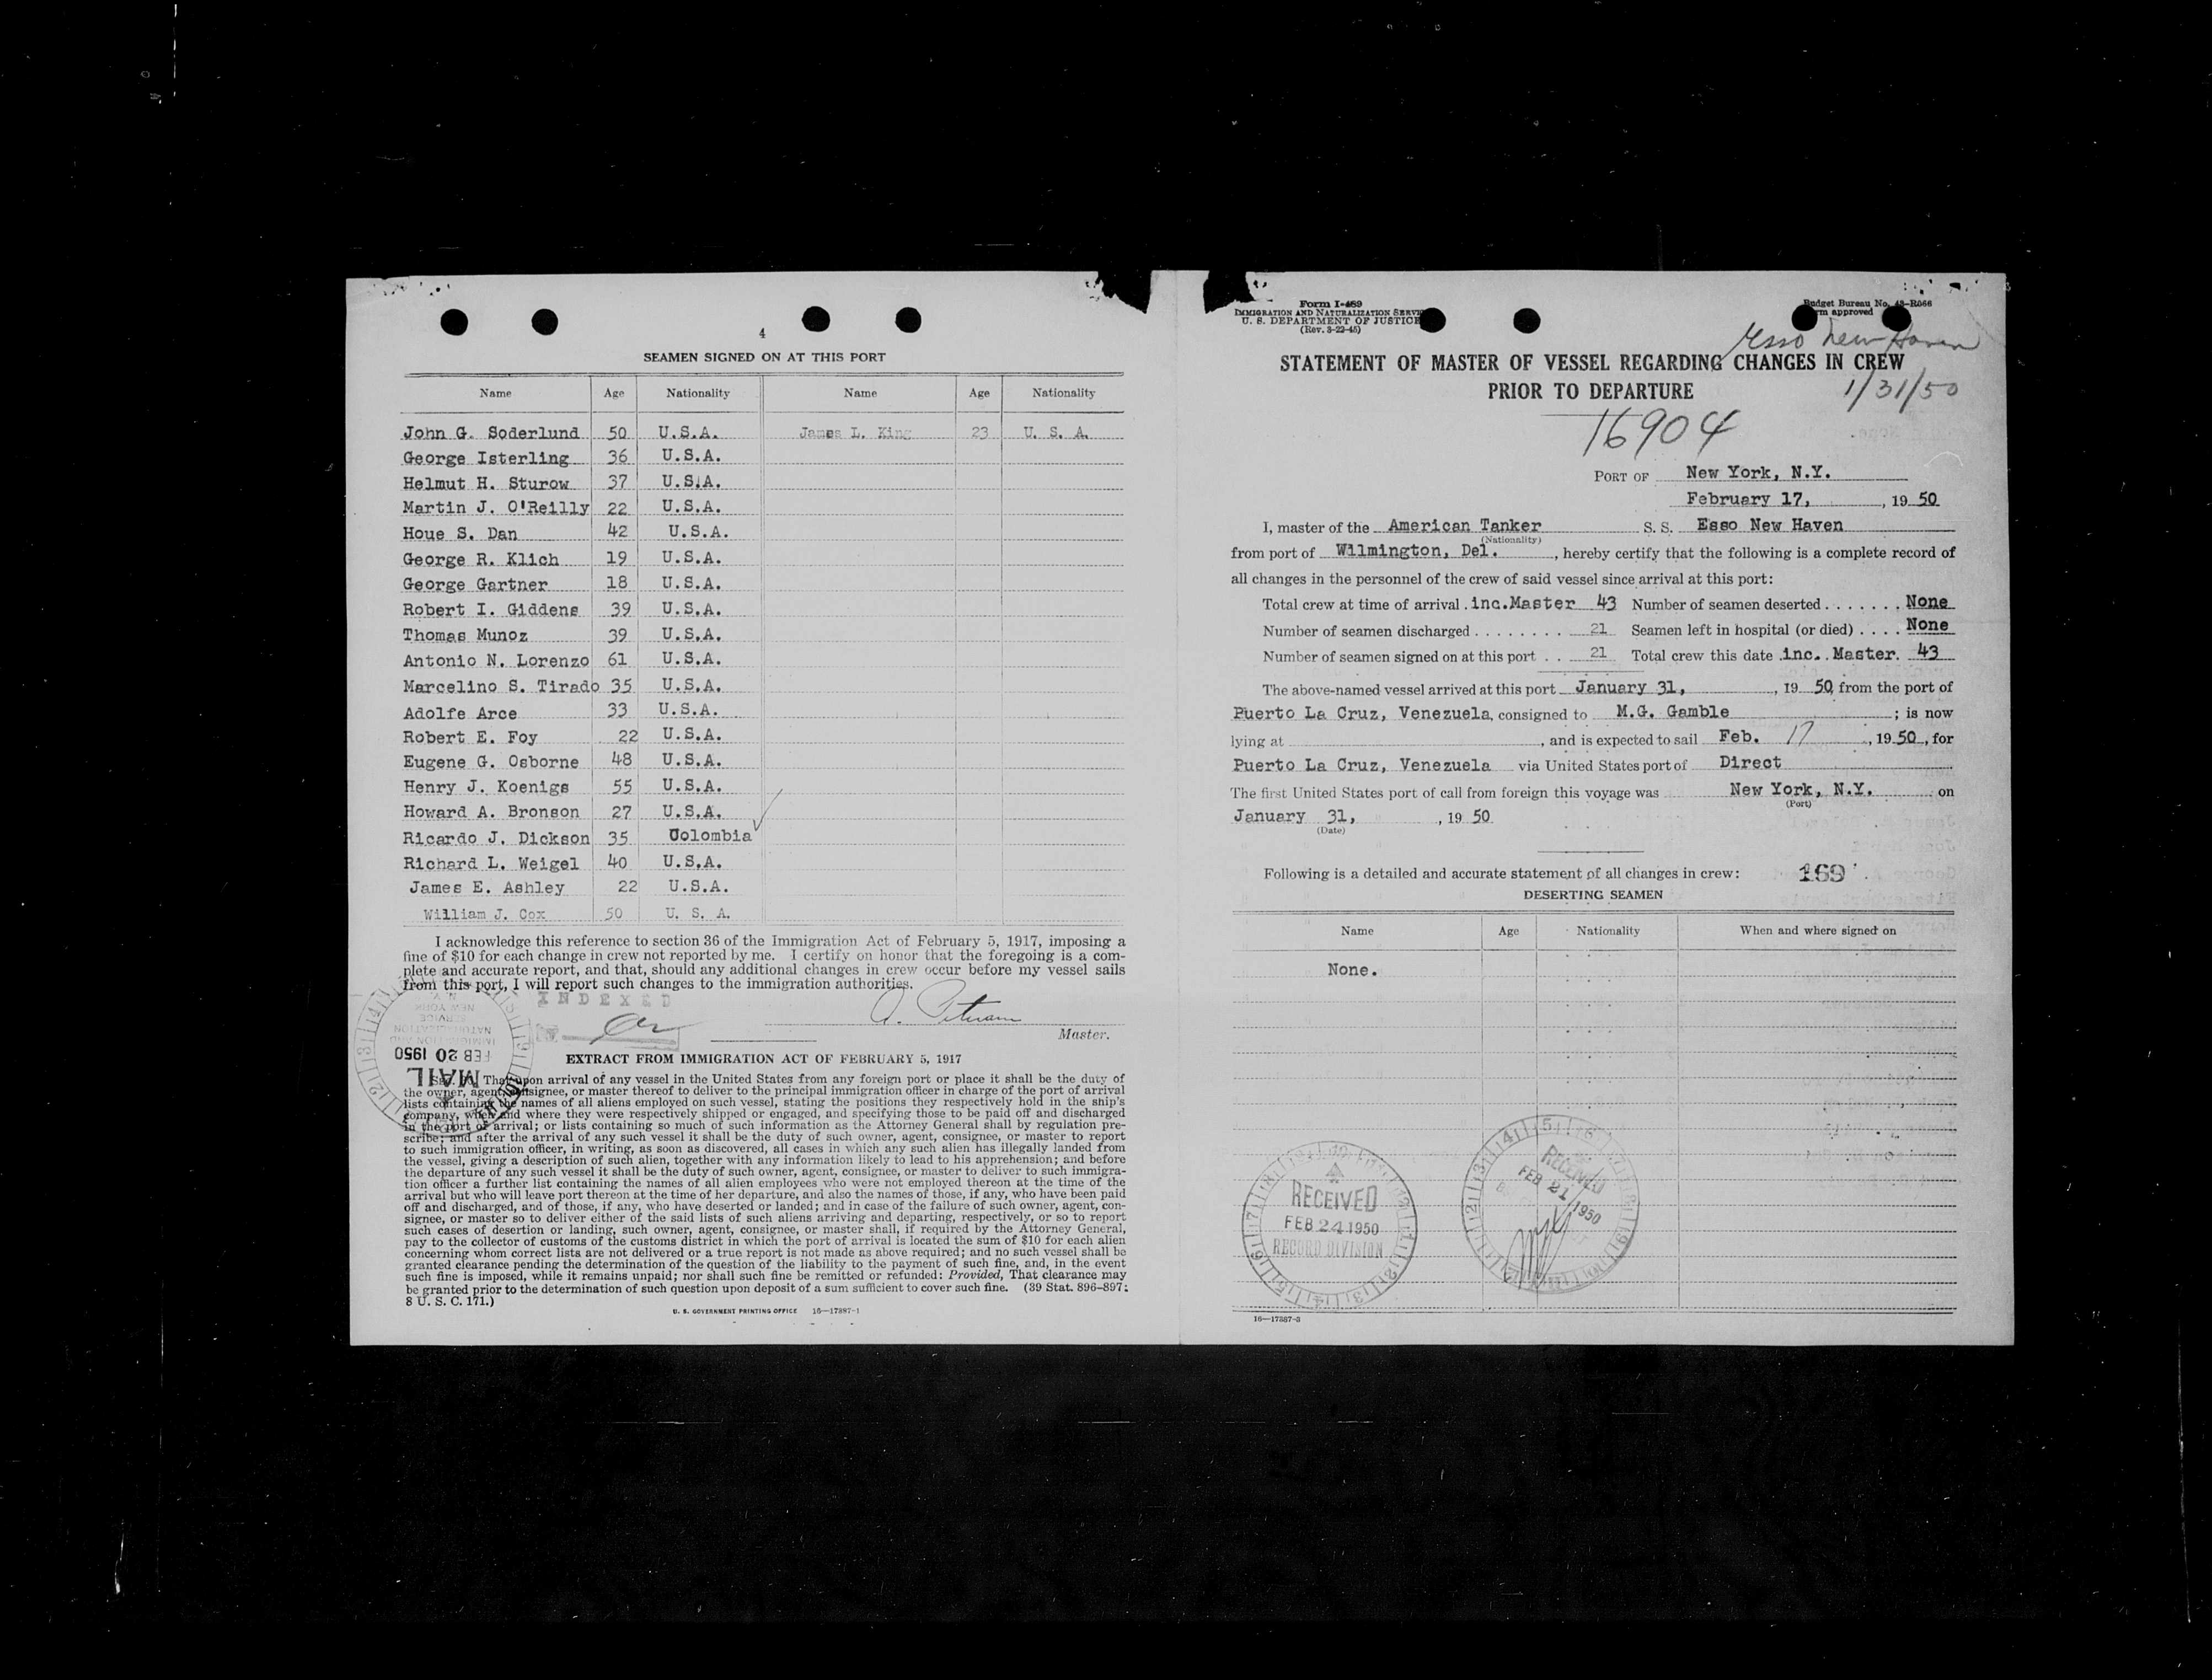 4
SEAMEN SIGNED ON AT THIS PORT
Name Age Nationality Name Age Nationality
John G. Soderlund 50 U.S.A. James L. King 23 U. S. A.
George Isterling 36 U.S.A.
Helmut H. Sturow 37 U.S.A.
Martin J. O'Reilly 22 U.S.A.
Houe S. Dan 42 U.S.A.
George R. Klich 19 U.S.A.
George Gartner 18 U.S.A.
Robert I. Giddens 39 U.S.A.
Thomas Munoz 39 U.S.A.
Antonio N. Lorenzo 61 U.S.A.
Marcelino S. Tirado 35 U.S.A.
Adolfe Arce 33 U.S.A.
Robert E. Foy 22 U.S.A.
Eugene G. Osborne 48 U.S.A.
Henry J. Koenigs 55 U.S.A.
Howard A. Bronson 27 U.S.A.
Ricardo J. Dickson 35 Colombia
Richard L. Weigel 40 U.S.A.
James E. Ashley 22 U.S.A.
William J. Cox 50 U. S. A.
I acknowledge this reference to section 36 of the Immigration Act of February 5, 1917, imposing a
fine of $10 for each change in crew not reported by me. I certify on honor that the foregoing is a com-
plete and accurate report, and that, should any additional changes in crew occur before my vessel sails
from this port, I will report such changes to the immigration authorities.
INDEXED
Master.
NEW YORK
SERVICE
NATURALIZATION
IMMIGRATION AND
FEB 20 1950
MAIL
EXTRACT FROM IMMIGRATION ACT OF FEBRUARY 5, 1917
That upon arrival of any vessel in the United States from any foreign port or place it shall be the duty of
the owner, agent, consignee, or master thereof to deliver to the principal immigration officer in charge of the port of arrival
lists containing the names of all aliens employed on such vessel, stating the positions they respectively hold in the ship's
company, when and where they were respectively shipped or engaged, and specifying those to be paid off and discharged
in the port of arrival; or lists containing so much of such information as the Attorney General shall by regulation pre-
scribe; and after the arrival of any such vessel it shall be the duty of such owner, agent, consignee, or master to report
to such immigration officer, in writing, as soon as discovered, all cases in which any such alien has illegally landed from
the vessel, giving a description of such alien, together with any information likely to lead to his apprehension; and before
the departure of any such vessel it shall be the duty of such owner, agent, consignee, or master to deliver to such immigra-
tion officer a further list containing the names of all alien employees who were not employed thereon at the time of the
arrival but who will leave port thereon at the time of her departure, and also the names of those, if any, who have been paid
off and discharged, and of those, if any, who have deserted or landed; and in case of the failure of such owner, agent, con-
signee, or master so to deliver either of the said lists of such aliens arriving and departing, respectively, or so to report
such cases of desertion or landing, such owner, agent, consignee, or master shall, if required by the Attorney General,
pay to the collector of customs of the customs district in which the port of arrival is located the sum of $10 for each alien
concerning whom correct lists are not delivered or a true report is not made as above required; and no such vessel shall be
granted clearance pending the determination of the question of the liability to the payment of such fine, and, in the event
such fine is imposed, while it remains unpaid; nor shall such fine be remitted or refunded: Provided, That clearance may
be granted prior to the determination of such question upon deposit of a sum sufficient to cover such fine. (39 Stat. 896-897;
8 U. S. C. 171.)
U. S. GOVERNMENT PRINTING OFFICE 16—17887-1
Form I-489
IMMIGRATION AND NATURALIZATION SERVICE
U. S. DEPARTMENT OF JUSTICE
(Rev. 3-22-45)
Budget Bureau No. 43-R066
approved
Esso New Haven
STATEMENT OF MASTER OF VESSEL REGARDING CHANGES IN CREW
PRIOR TO DEPARTURE 1/31/50
16904
PORT OF New York, N.Y.
February 17, , 19 50
I, master of the American Tanker S. S. Esso New Haven
(Nationality)
from port of Wilmington, Del. , hereby certify that the following is a complete record of
all changes in the personnel of the crew of said vessel since arrival at this port:
Total crew at time of arrival . inc.Master 43 Number of seamen deserted . . . . . . . None
Number of seamen discharged . . . . . . . . 21 Seamen left in hospital (or died) . . . . None
Number of seamen signed on at this port . . 21 Total crew this date .inc. Master. 43
The above-named vessel arrived at this port January 31, , 19 50 from the port of
Puerto La Cruz, Venezuela, consigned to M.G. Gamble ; is now
lying at , and is expected to sail Feb. 17 , 19 50 , for
Puerto La Cruz, Venezuela via United States port of Direct
The first United States port of call from foreign this voyage was New York, N.Y. on
(Port)
January 31, , 19 50
(Date)
Following is a detailed and accurate statement of all changes in crew: 169
DESERTING SEAMEN
Name Age Nationality When and where signed on
None.
RECEIVED
FEB 24 1950
RECORD DIVISION
RECEIVED
FEB 21 1950
16—17887-3